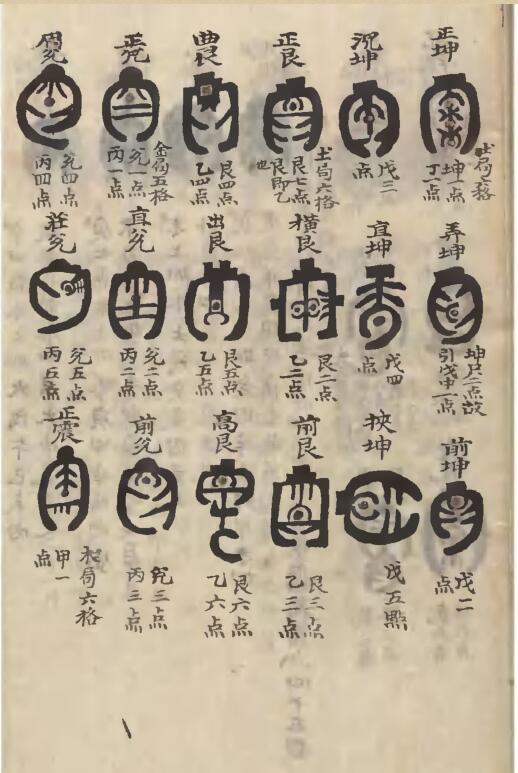 正坤
土局五格
坤一点
丁一点
弄坤
坤尺二点故
引戊申一点
前坤
戊二
点
沉坤
戊三
点
宜坤
戊四
点
挾坤
戊五點
正艮
土局六格
艮七点
艮即乙
也
横艮
艮二点
乙二点
前艮
艮三点
乙三点
農艮
艮四点
乙四点
出艮
艮五点
乙五点
高艮
艮六点
乙六点
正兊
金局五格
兊一点
丙一点
直兊
兊二点
丙二点
前兊
兊三点
丙三点
兊四点
丙四点
莊兊
兊五点
丙五点
正震
木局六格
甲一
点